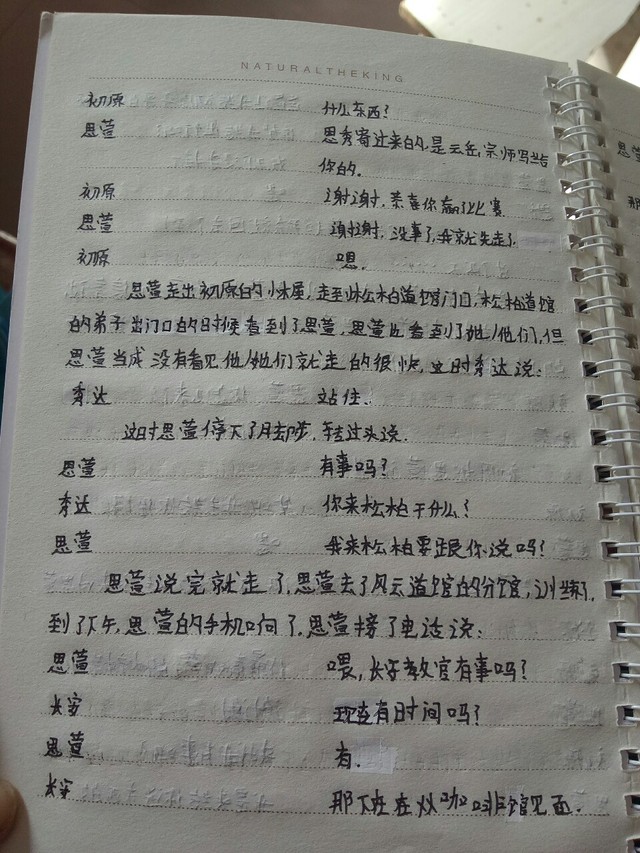 NATURALTHEKING
初原 什么东西?
思萱 思秀寄过来的,是云岳宗师写给
你的.
初原 谢谢,恭喜你赢了比赛.
思萱 谢谢,没事了,我就先走了.
初原 嗯.
思萱走出初原的小木屋,走到松柏道馆门口,松柏道馆
的弟子出门口的时候看到了思萱,思萱也看到了她/他们,但
思萱当成没有看见他/她们就走的很快,这时秀达说:
秀达 站住.
这时思萱停下了脚步,转过头说.
思萱 有事吗?
秀达 你来松柏干什么?
思萱 我来松柏要跟你说吗?
思萱说完就走了,思萱去了风云道馆的分馆,训练了,
到了下午,思萱的手机响了,思萱接了电话说:
思萱 喂,长安教官有事吗?
长安 现在有时间吗?
思萱 有.
长安 那下班在 咖啡馆见面.
思萱
那